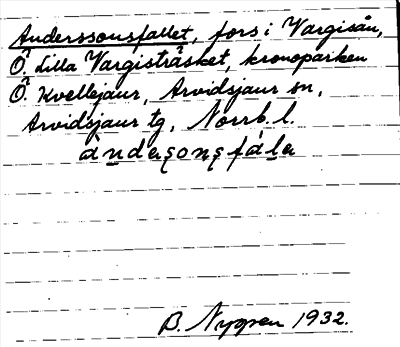 Anderssonsfallet, fors i Vargisån,
Ö. Lilla Vargisträsket, kronoparken
Ö. Kvellejaur, Arvidsjaur sn,
Arvidsjaur tg, Norrb. l.
àndeʂonʂfála
B. Nygren 1932.